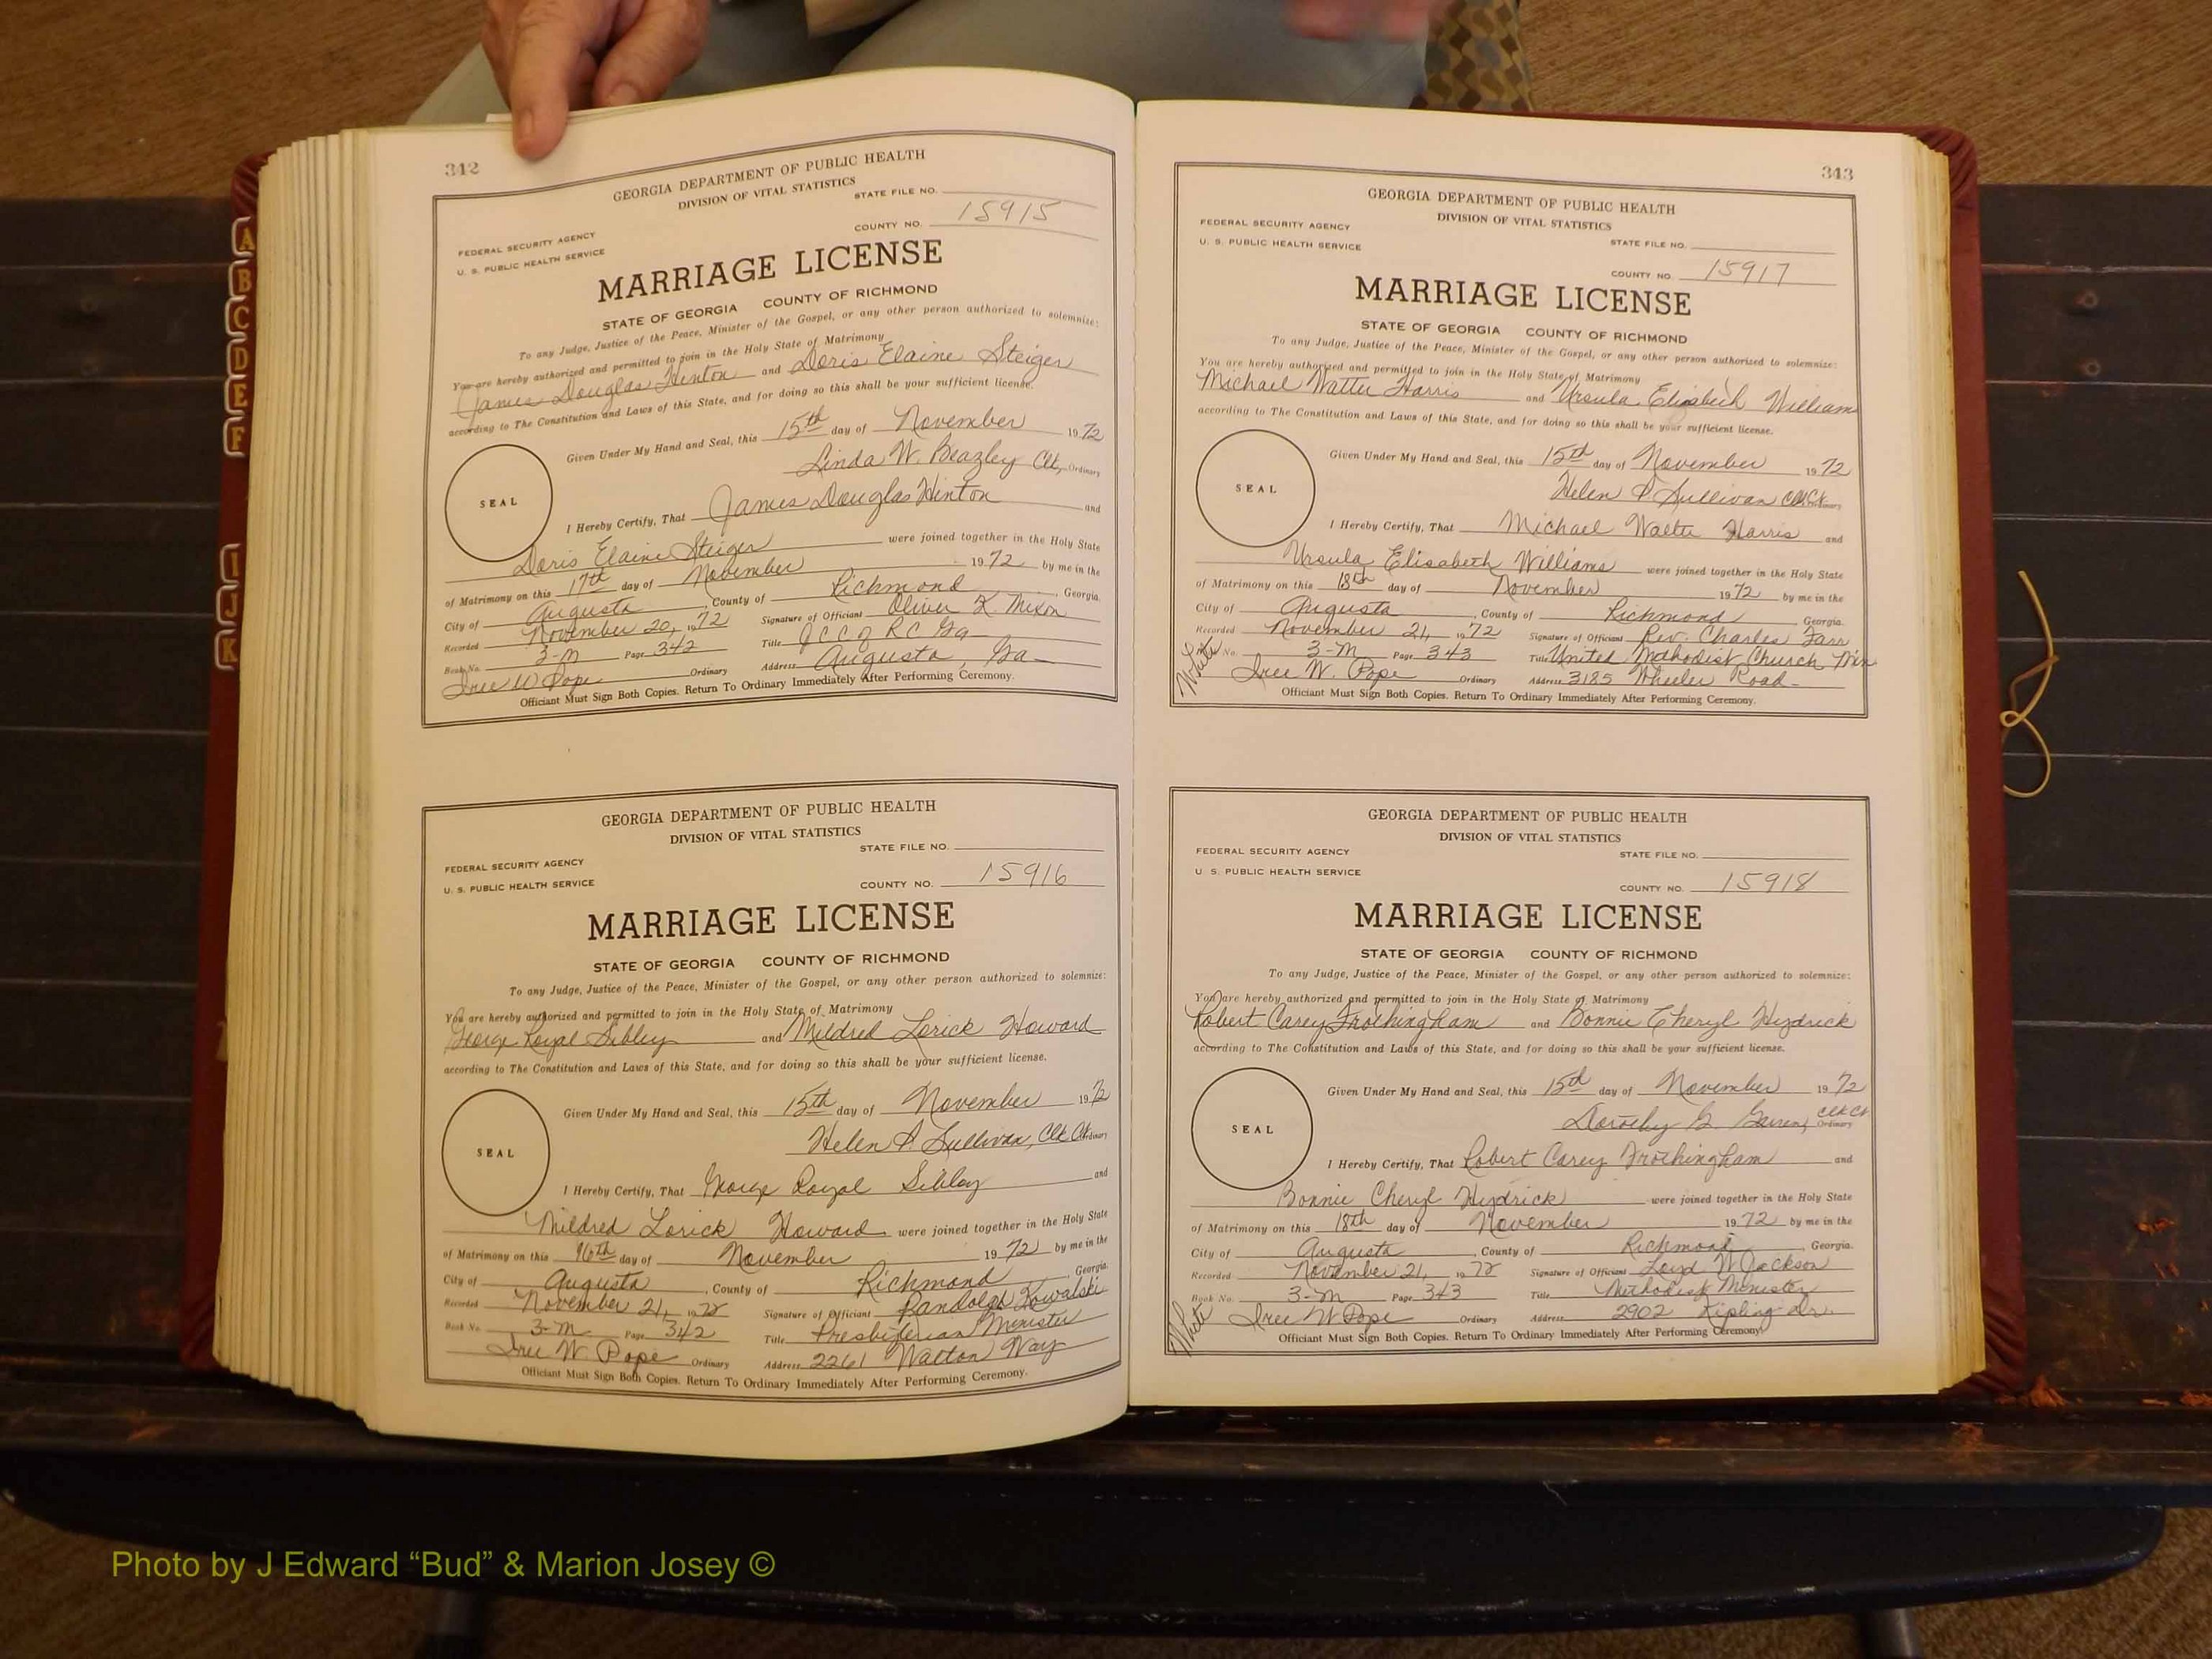 342
GEORGIA DEPARTMENT OF PUBLIC HEALTH
DIVISION OF VITAL STATISTICS
STATE FILE NO.
COUNTY NO. 15915
FEDERAL SECURITY AGENCY
U. S. PUBLIC HEALTH SERVICE
MARRIAGE LICENSE
STATE OF GEORGIA COUNTY OF RICHMOND
To any Judge, Justice of the Peace, Minister of the Gospel, or any other person authorized to solemnize:
You are hereby authorized and permitted to join in the Holy State of Matrimony
James Douglas Hinton and Doris Elaine Steiger
according to The Constitution and Laws of this State, and for doing so this shall be your sufficient license.
Given Under My Hand and Seal, this 15th day of November 1972
Linda W. Beazley Clk, Ordinary
SEAL
I Hereby Certify, That James Douglas Hinton and
Doris Elaine Steiger were joined together in the Holy State
of Matrimony on this 17th day of November 1972 by me in the
City of Augusta, County of Richmond, Georgia.
Recorded November 20, 1972 Signature of Officiant Oliver K. Mixon
Book No. 3-M Page 342 Title J C C of R C Ga
Iree W Pope Ordinary Address Augusta, Ga
Officiant Must Sign Both Copies. Return To Ordinary Immediately After Performing Ceremony.
GEORGIA DEPARTMENT OF PUBLIC HEALTH
DIVISION OF VITAL STATISTICS
STATE FILE NO.
FEDERAL SECURITY AGENCY
U. S. PUBLIC HEALTH SERVICE
COUNTY NO. 15916
MARRIAGE LICENSE
STATE OF GEORGIA COUNTY OF RICHMOND
To any Judge, Justice of the Peace, Minister of the Gospel, or any other person authorized to solemnize:
You are hereby authorized and permitted to join in the Holy State of Matrimony
George Royal Sibley and Mildred Lorick Howard
according to The Constitution and Laws of this State, and for doing so this shall be your sufficient license.
Given Under My Hand and Seal, this 15th day of November 1972
Helen P. Sullivan, Clk Ct Ordinary
SEAL
I Hereby Certify, That George Royal Sibley and
Mildred Lorick Howard were joined together in the Holy State
of Matrimony on this 16th day of November 1972 by me in the
City of Augusta, County of Richmond, Georgia.
Recorded November 21, 1972 Signature of Officiant Randolph Kowalski
Book No. 3-M Page 342 Title Presbyterian Minister
Iree W. Pope Ordinary Address 2261 Walton Way
Officiant Must Sign Both Copies. Return To Ordinary Immediately After Performing Ceremony.
343
GEORGIA DEPARTMENT OF PUBLIC HEALTH
DIVISION OF VITAL STATISTICS
FEDERAL SECURITY AGENCY
U. S. PUBLIC HEALTH SERVICE
STATE FILE NO.
COUNTY NO. 15917
MARRIAGE LICENSE
STATE OF GEORGIA COUNTY OF RICHMOND
To any Judge, Justice of the Peace, Minister of the Gospel, or any other person authorized to solemnize:
You are hereby authorized and permitted to join in the Holy State of Matrimony
Michael Walter Harris and Ursula Elisabeth William
according to The Constitution and Laws of this State, and for doing so this shall be your sufficient license.
Given Under My Hand and Seal, this 15th day of November 1972
Helen P. Sullivan Clk Ct Ordinary
SEAL
I Hereby Certify, That Michael Walter Harris and
Ursula Elisabeth Williams were joined together in the Holy State
of Matrimony on this 18th day of November 1972 by me in the
City of Augusta, County of Richmond, Georgia.
Recorded November 21, 1972 Signature of Officiant Rev. Charles Farr
White No. 3-M Page 343 Title United Methodist Church, Min
Iree W. Pope Ordinary Address 3125 Wheeler Road
Officiant Must Sign Both Copies. Return To Ordinary Immediately After Performing Ceremony.
GEORGIA DEPARTMENT OF PUBLIC HEALTH
DIVISION OF VITAL STATISTICS
FEDERAL SECURITY AGENCY
STATE FILE NO.
U. S. PUBLIC HEALTH SERVICE
COUNTY NO. 15918
MARRIAGE LICENSE
STATE OF GEORGIA COUNTY OF RICHMOND
To any Judge, Justice of the Peace, Minister of the Gospel, or any other person authorized to solemnize:
You are hereby authorized and permitted to join in the Holy State of Matrimony
Robert Carey Frothingham and Bonnie Cheryl Hydrick
according to The Constitution and Laws of this State, and for doing so this shall be your sufficient license.
Given Under My Hand and Seal, this 15th day of November 1972
Dorothy G. Clk Ct Ordinary
SEAL
I Hereby Certify, That Robert Carey Frothingham and
Bonnie Cheryl Hydrick were joined together in the Holy State
of Matrimony on this 18th day of November 1972 by me in the
City of Augusta, County of Richmond, Georgia.
Recorded November 21, 1972 Signature of Officiant Loyd W Jackson
Book No. 3-M Page 343 Title Methodist Minister
White Iree W Pope Ordinary Address 2902 Kipling Dr.
Officiant Must Sign Both Copies. Return To Ordinary Immediately After Performing Ceremony.
A
B
C
D
E
F
I
J
K
Photo by J Edward “Bud” & Marion Josey ©